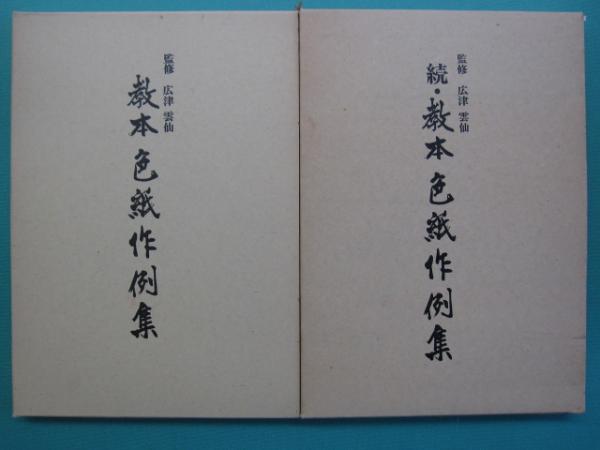 監修 広津雲仙
教本色紙作例集
監修 広津雲仙
続・教本色紙作例集